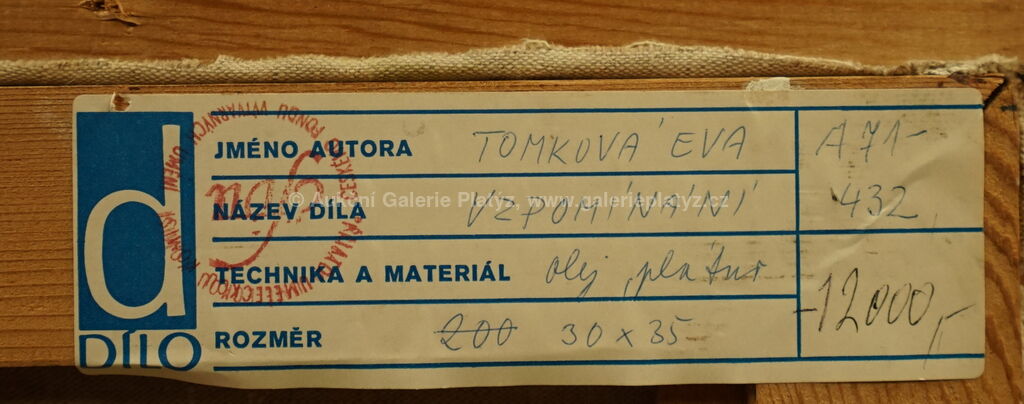 JMÉNO AUTORA TOMKOVÁ EVA A 71-
NÁZEV DÍLA VZPOMÍNÁNÍ 432
© Aukční Galerie Platýz, www.galerieplatyz.cz
TECHNIKA A MATERIÁL olej, plátno
ROZMĚR 200 30 x 35 -12000,-
d
DÍLO
FONDU VÝTVARNÝCH UMĚNÍ